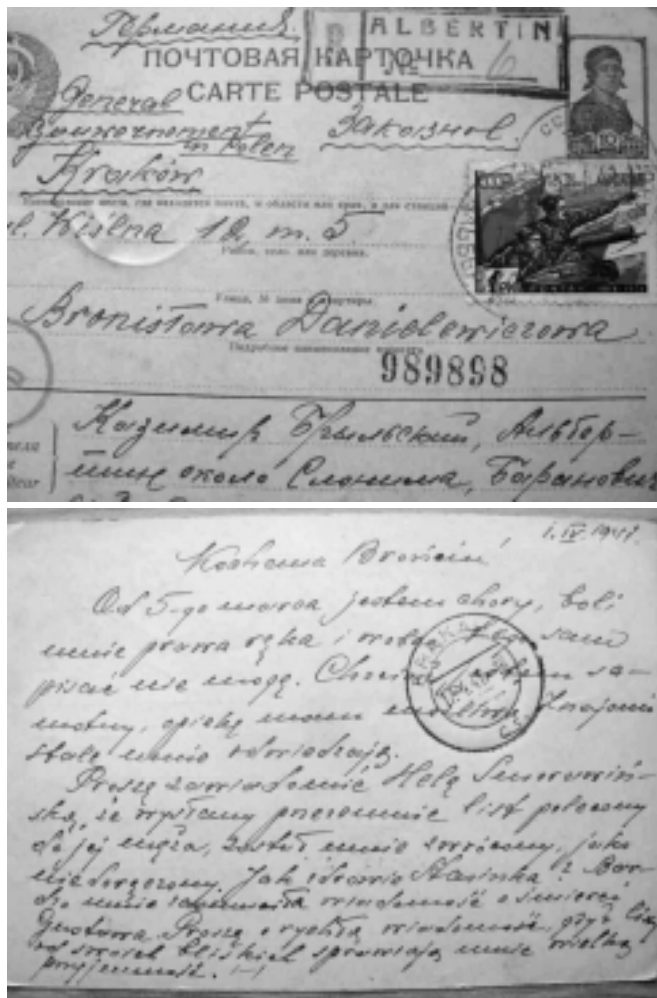 Германия.
ALBERTIN
№ 6
ПОЧТОВАЯ КАРТОЧКА
CARTE POSTALE
General
Gouvernement
in Polen
Заказное.
Kraków
ul. Wiślna 10, m. 5.
Район, село или деревня.
Улица, № дома и квартиры.
Bronisława Danielewiczowa
Подробное наименование
989898
Казимир Брыльский, Альбер-
тин около Слонима, Баранович
1.IV.1941.
Kochana Broniciu!
Od 5-go marca jestem chory, boli
mnie prawa ręka i wobec tego sam
pisać nie mogę. jestem sa-
motny, opiekę mam Znajomi
stale mnie odwiedzają.
Proszę zawiadomić Helę Smorawiń-
ską, że wysłany przezemnie list polecony
do jej męża, został mnie zwrócony, jako
niedoręczony. Jak zdrowie Stasinka? Bar-
dzo mnie zasmuciła wiadomość o śmierci
Gustawa. Proszę o rychłą wiadomość, gdyż listy
od swoich bliskich sprawiają mnie wielką
przyjemność.